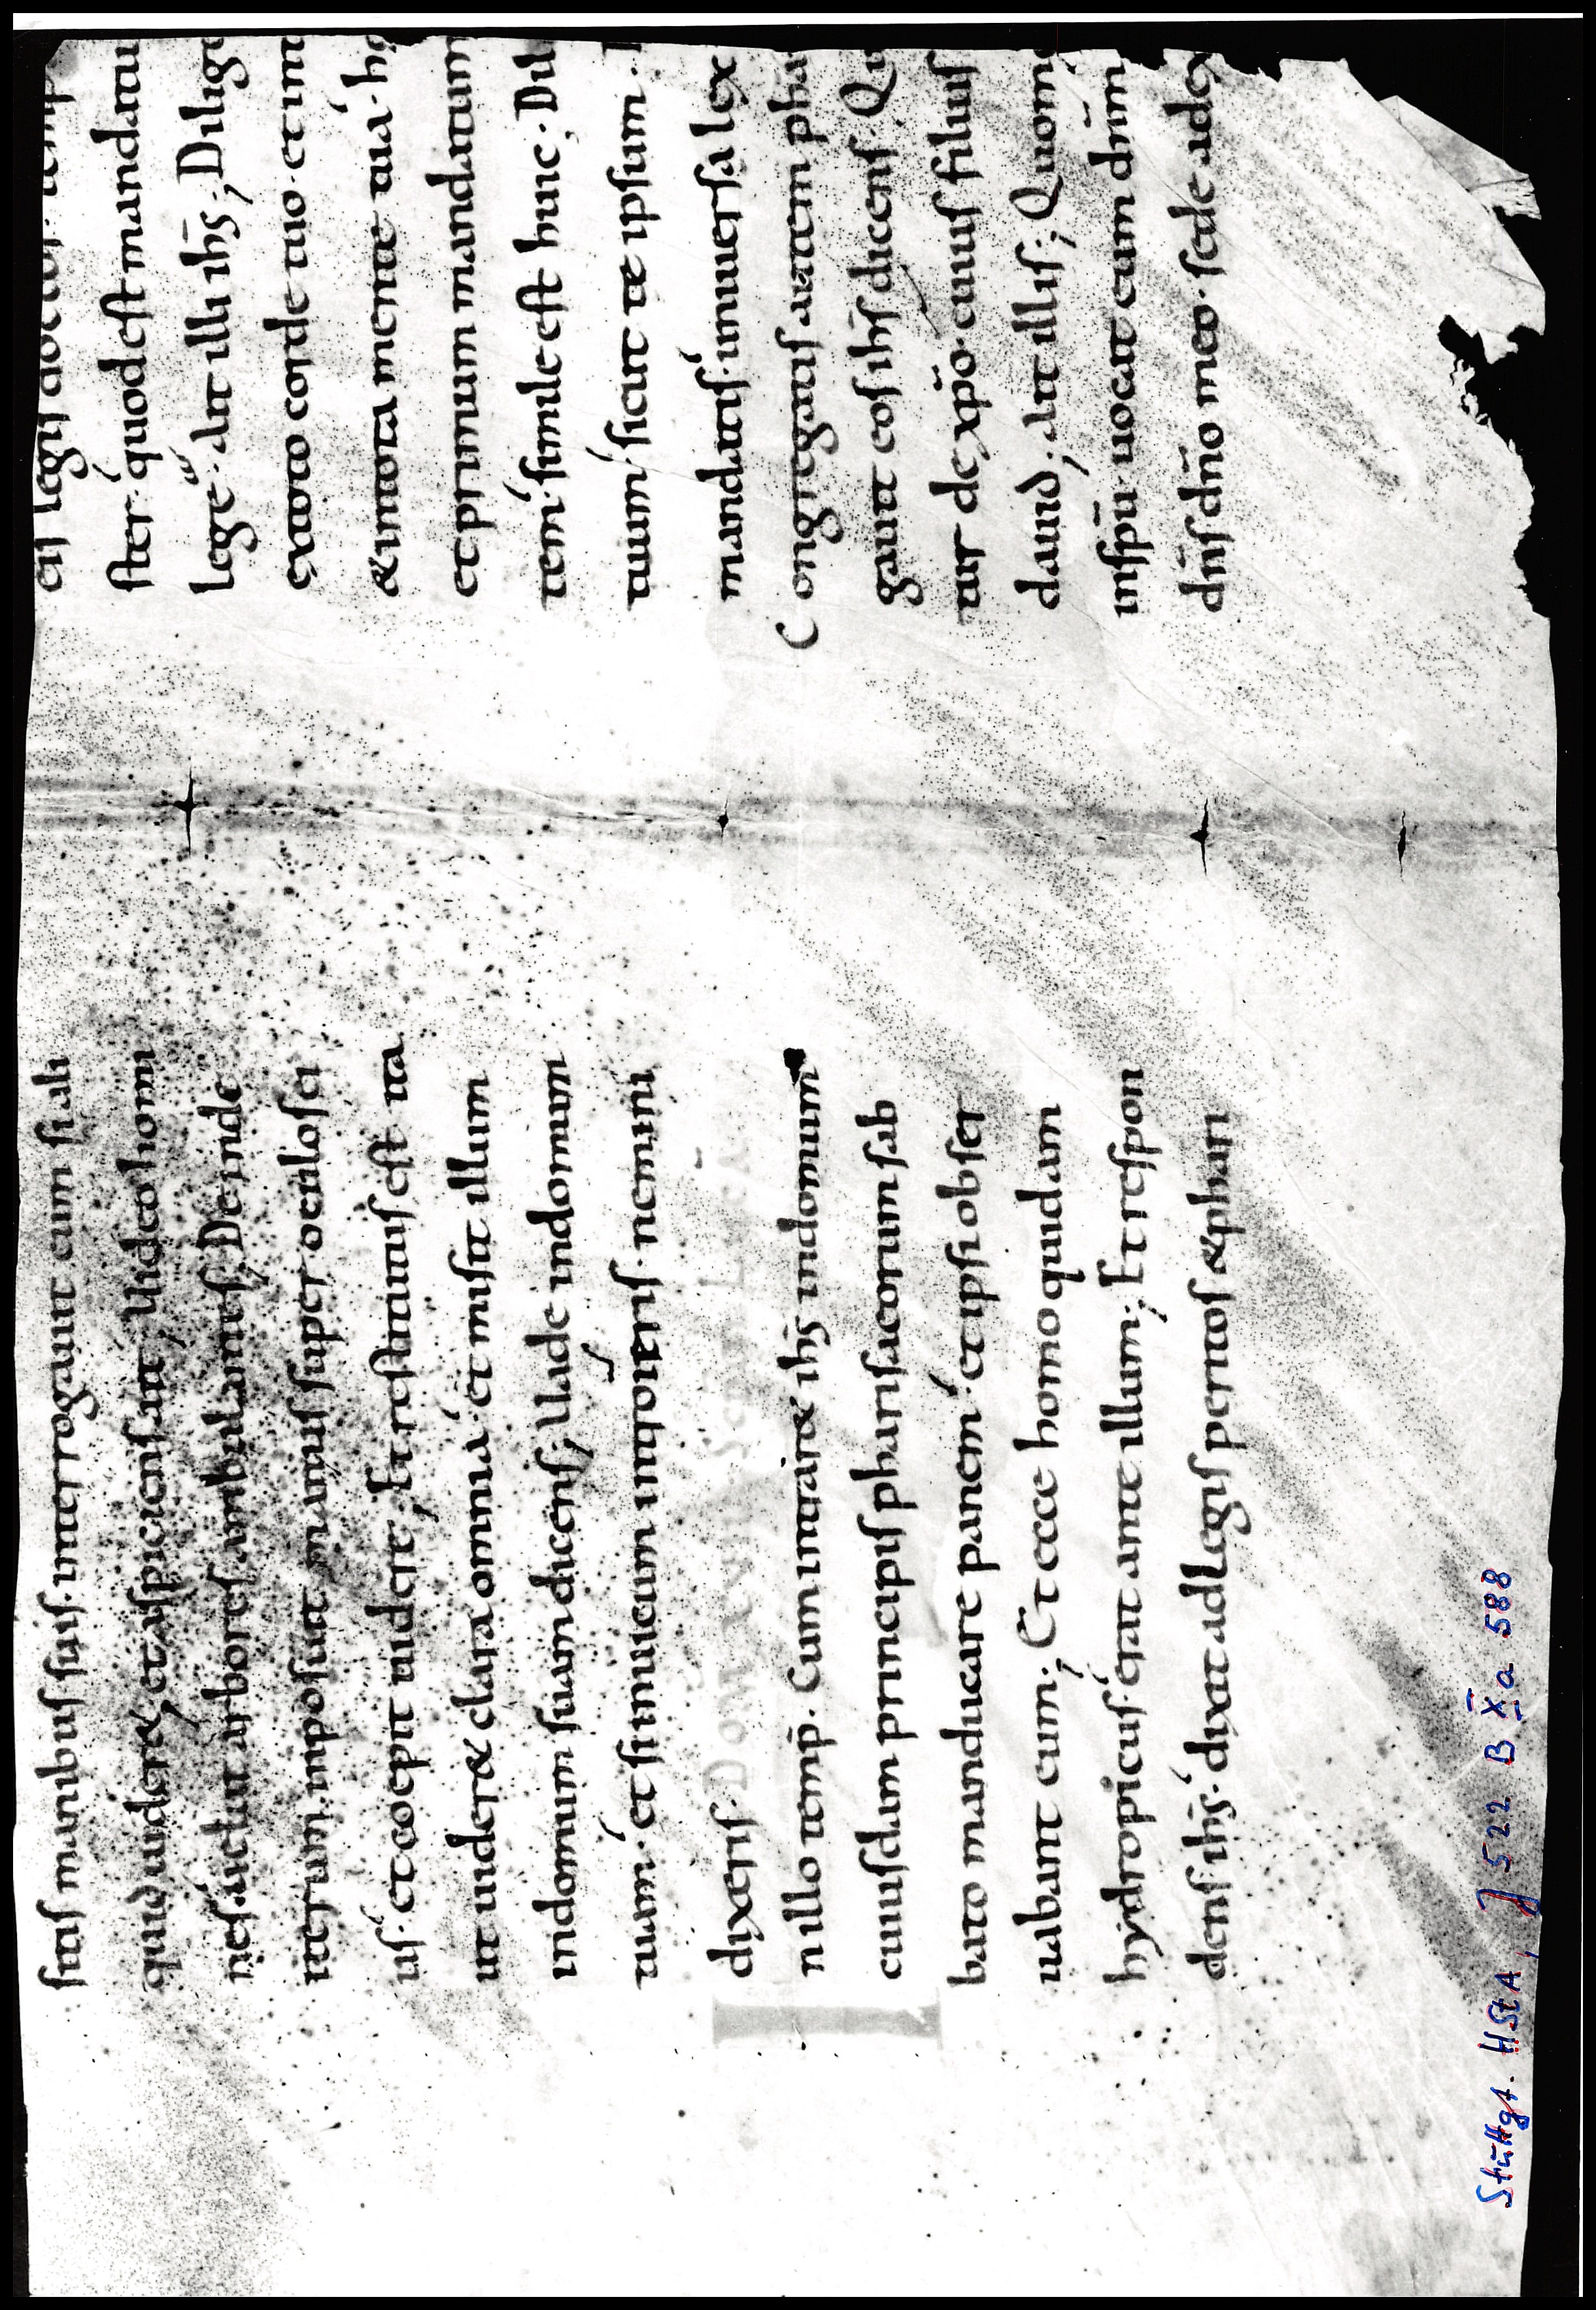 sitis manibus suis. interrogauit eum siali
quid uideret, et aspiciens ait, Uideo homi
nes uelut arbores ambulantes; Deinde
iterum inposuit manus super oculos ei
us. et coepit uidere, Et restitutus est ita
ut uideret clara omnia. et misit illum
indomum suam dicens; Uade indomum
tuam. et siinuicum introieris. nemini
dixeris. Dom
n illo temp̄. Cum intraret ihs̄ indomum
cuiusdam principis pharisaeorum sab
bato manducare panem. et ipsi obser
uabant eum; Et ecce homo quidam
hydropicus erat ante illum; Et respon
dens ihs̄. dixit ad legis peritos et phari
eis legis doctor. temp
ster. quod est mandatu
lege. Ait illi ihs̄; Dilige
ex toto corde tuo. et in
et in tota mente tua. h
et primum mandatum
tem. simile est huic; Dil
tuum. sicut te ipsum.
mandatis. uniuersa lex
Congregatis autem pha
gauit eos ihs̄ dicens. Qu
tur de xpō. cuius filius
dauid; Ait illis; Quom
in spū. uocat eum dn̄m
dn̄s dn̄o meo. sede ad ex
Stuttgt. HStA, J 522 B X a 588